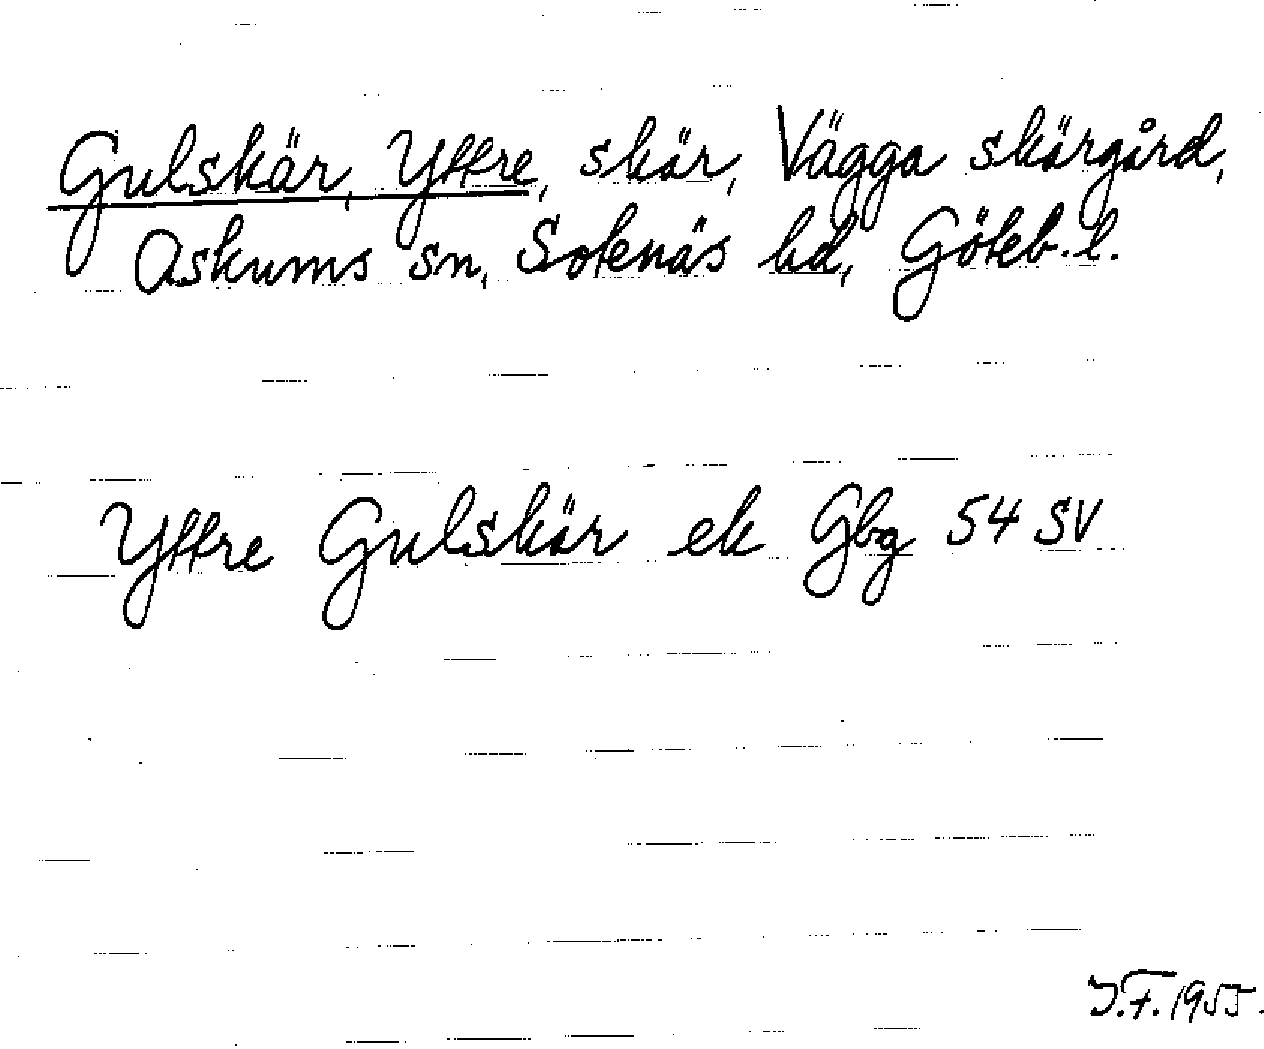 Gulskär, Yttre, skär, Vägga skärgård,
Askums sn, Sotenäs hd, Göteb. l.
Yttre Gulskär ek Gbg 54 SV
J.F. 1955.